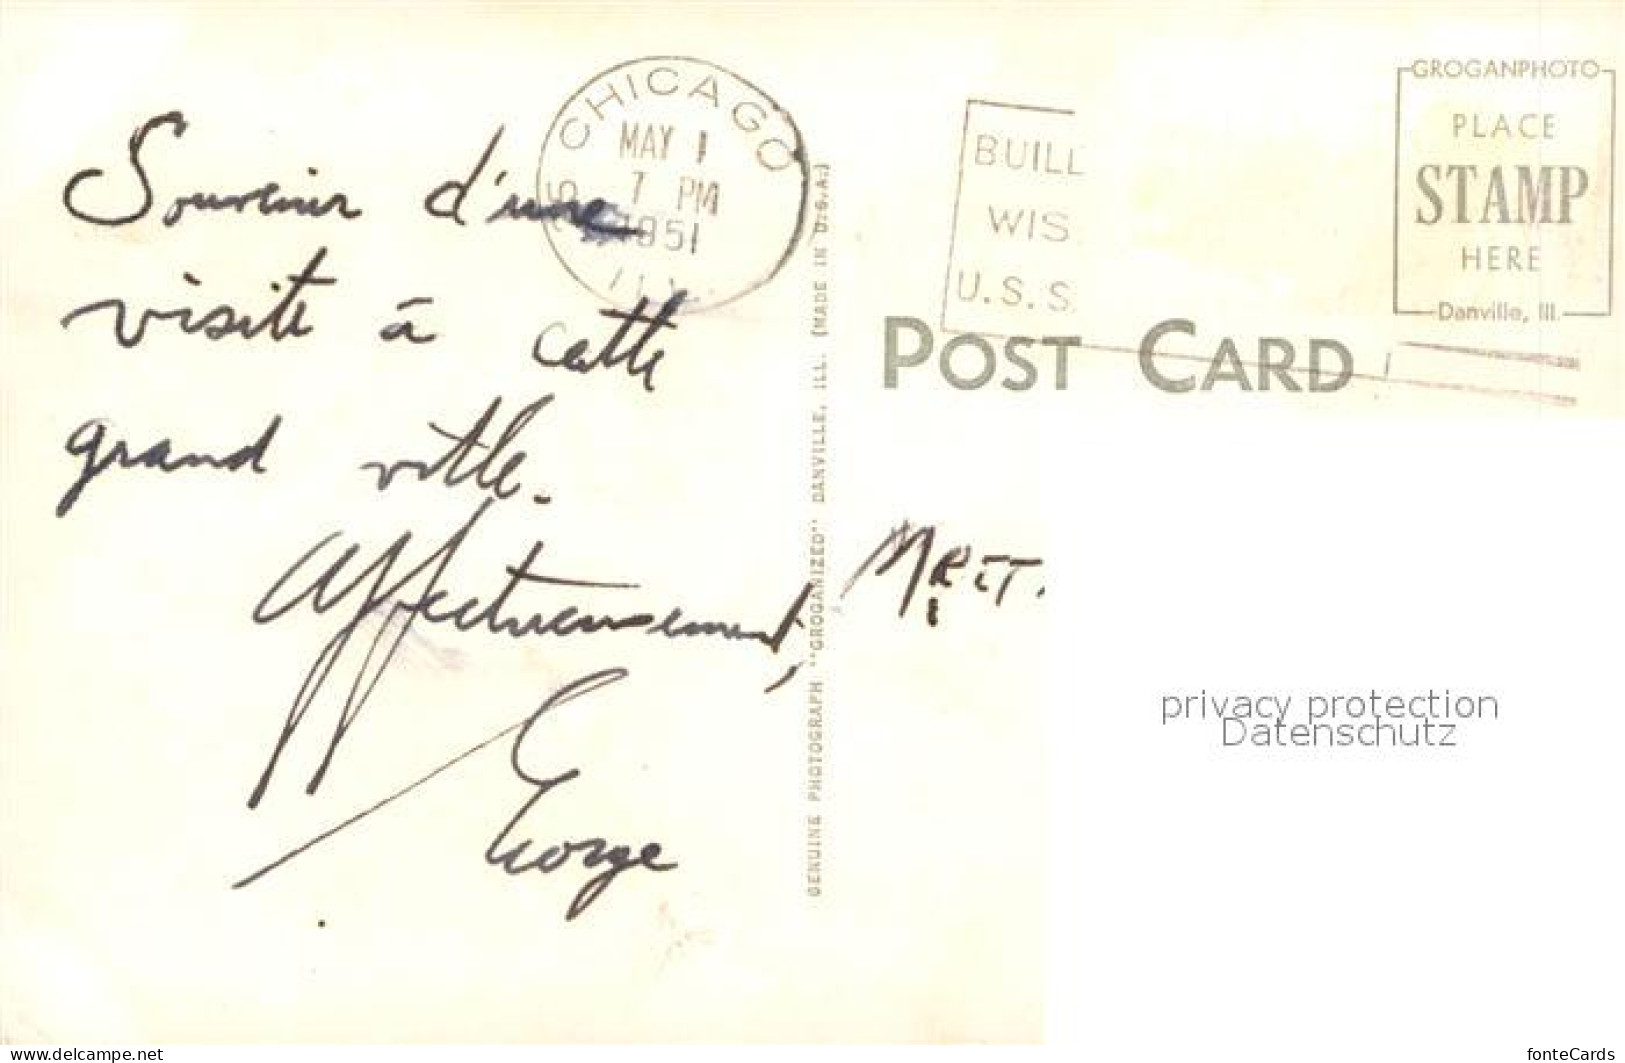 Souvenir d'une
visite à cette
grand ville.
Affectueusement,
George
CHICAGO
MAY 1
7 PM
1951
ILL.
GENUINE PHOTOGRAPH "GROGANIZED" DANVILLE, ILL. (MADE IN U.S.A.)
BUILD
WIS
U.S.S
GROGANPHOTO
PLACE
STAMP
HERE
Danville, Ill.
POST CARD
privacy protection
Datenschutz
www.delcampe.net
fonteCards